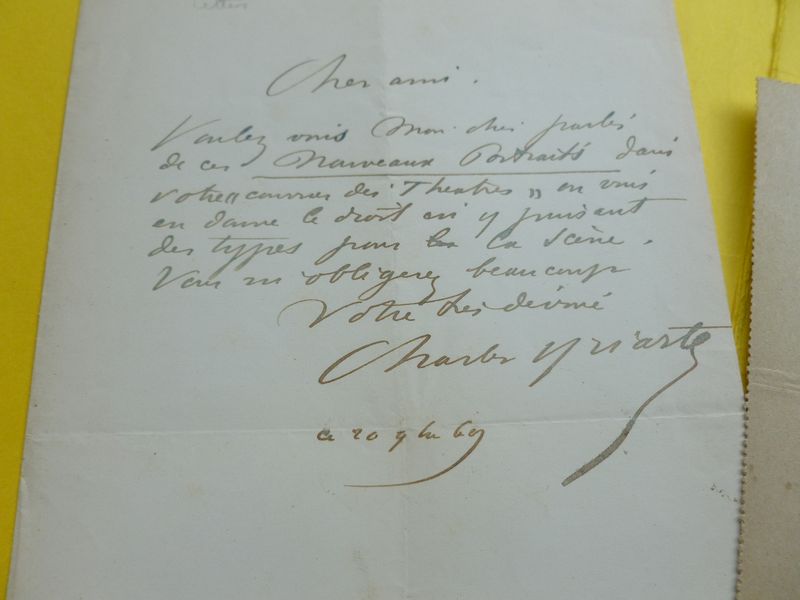 Letters
Cher ami.
Voulez vous mon cher parler
de ces Nouveaux Portraits dans
votre "courrier des Théatres" on vous
en donne le droit en y puisant
des types pour la scène.
Vous m'obligerez beaucoup
Votre très dévoué
Charles Yriarte
ce 20 9bre 69